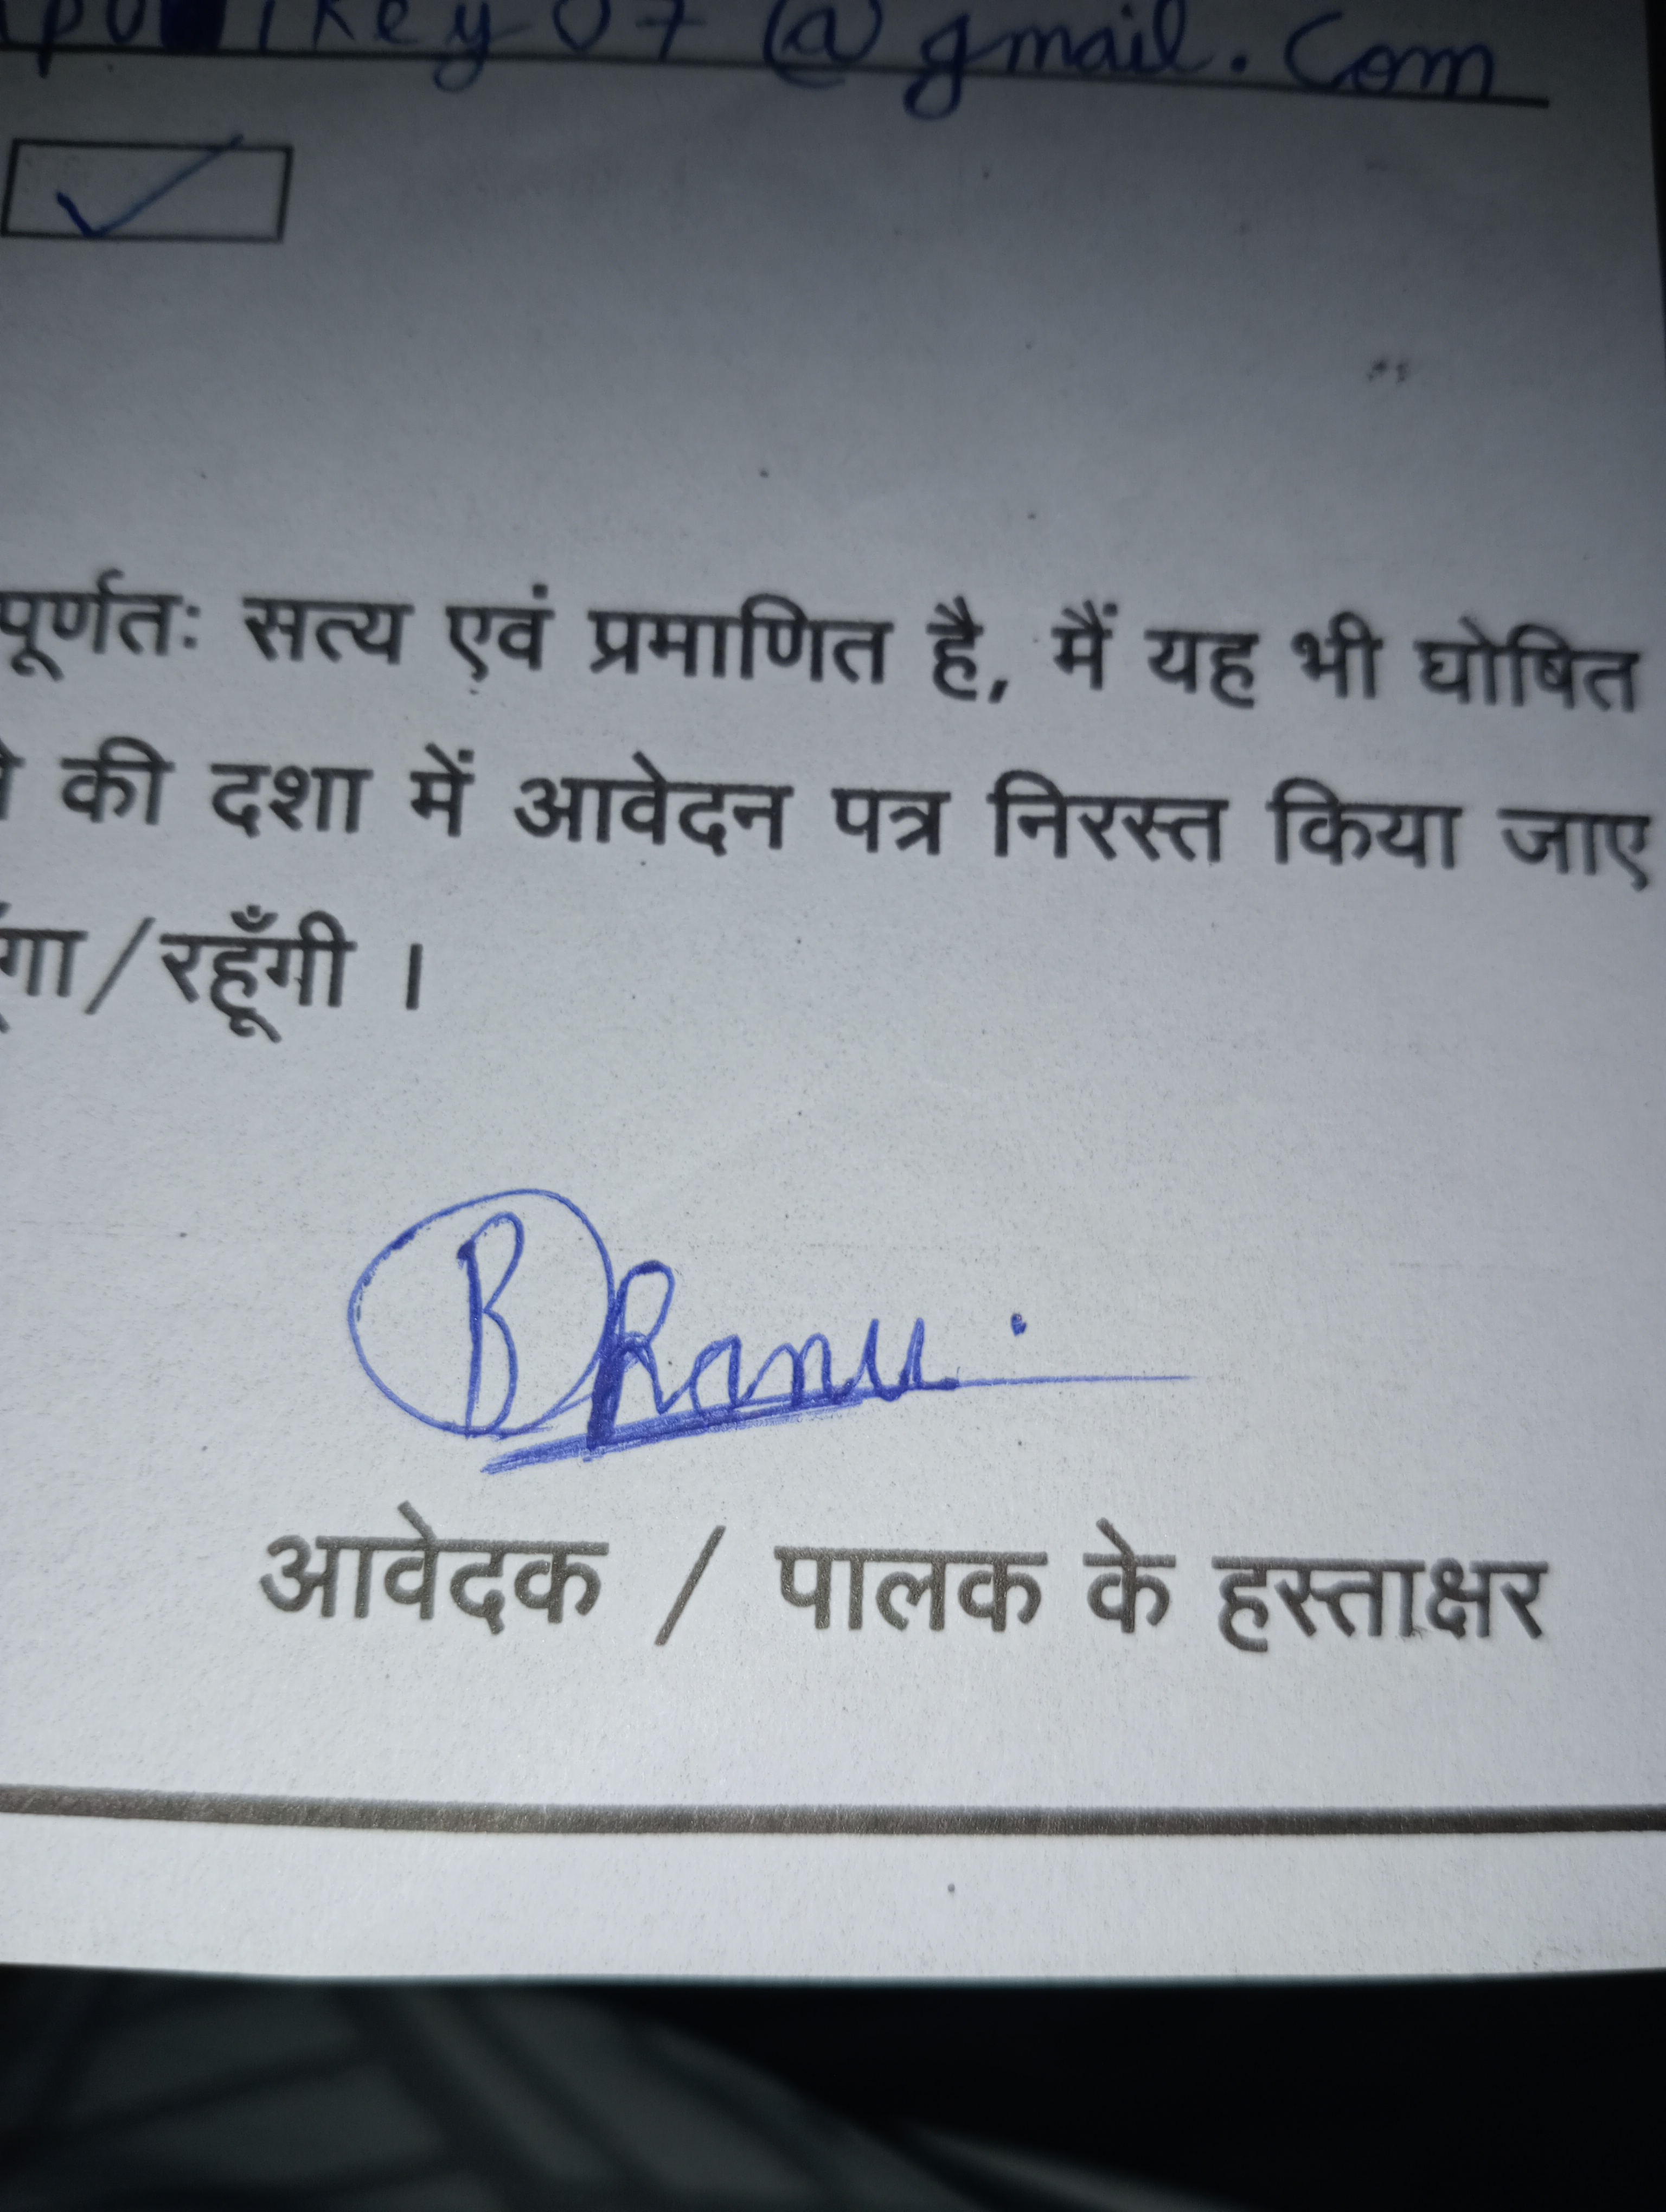 key07@gmail.com
पूर्णतः सत्य एवं प्रमाणित है, मैं यह भी घोषित
की दशा में आवेदन पत्र निरस्त किया जाए
/रहूँगी ।
Bhanu.
आवेदक / पालक के हस्ताक्षर